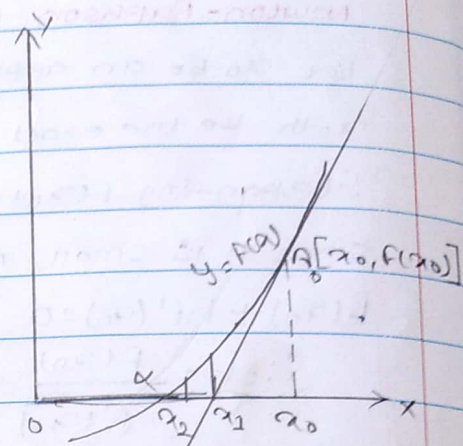 Y
y=f(x)
A₀[x₀,f(x₀)]
α
0 x₂ x₁ x₀ X